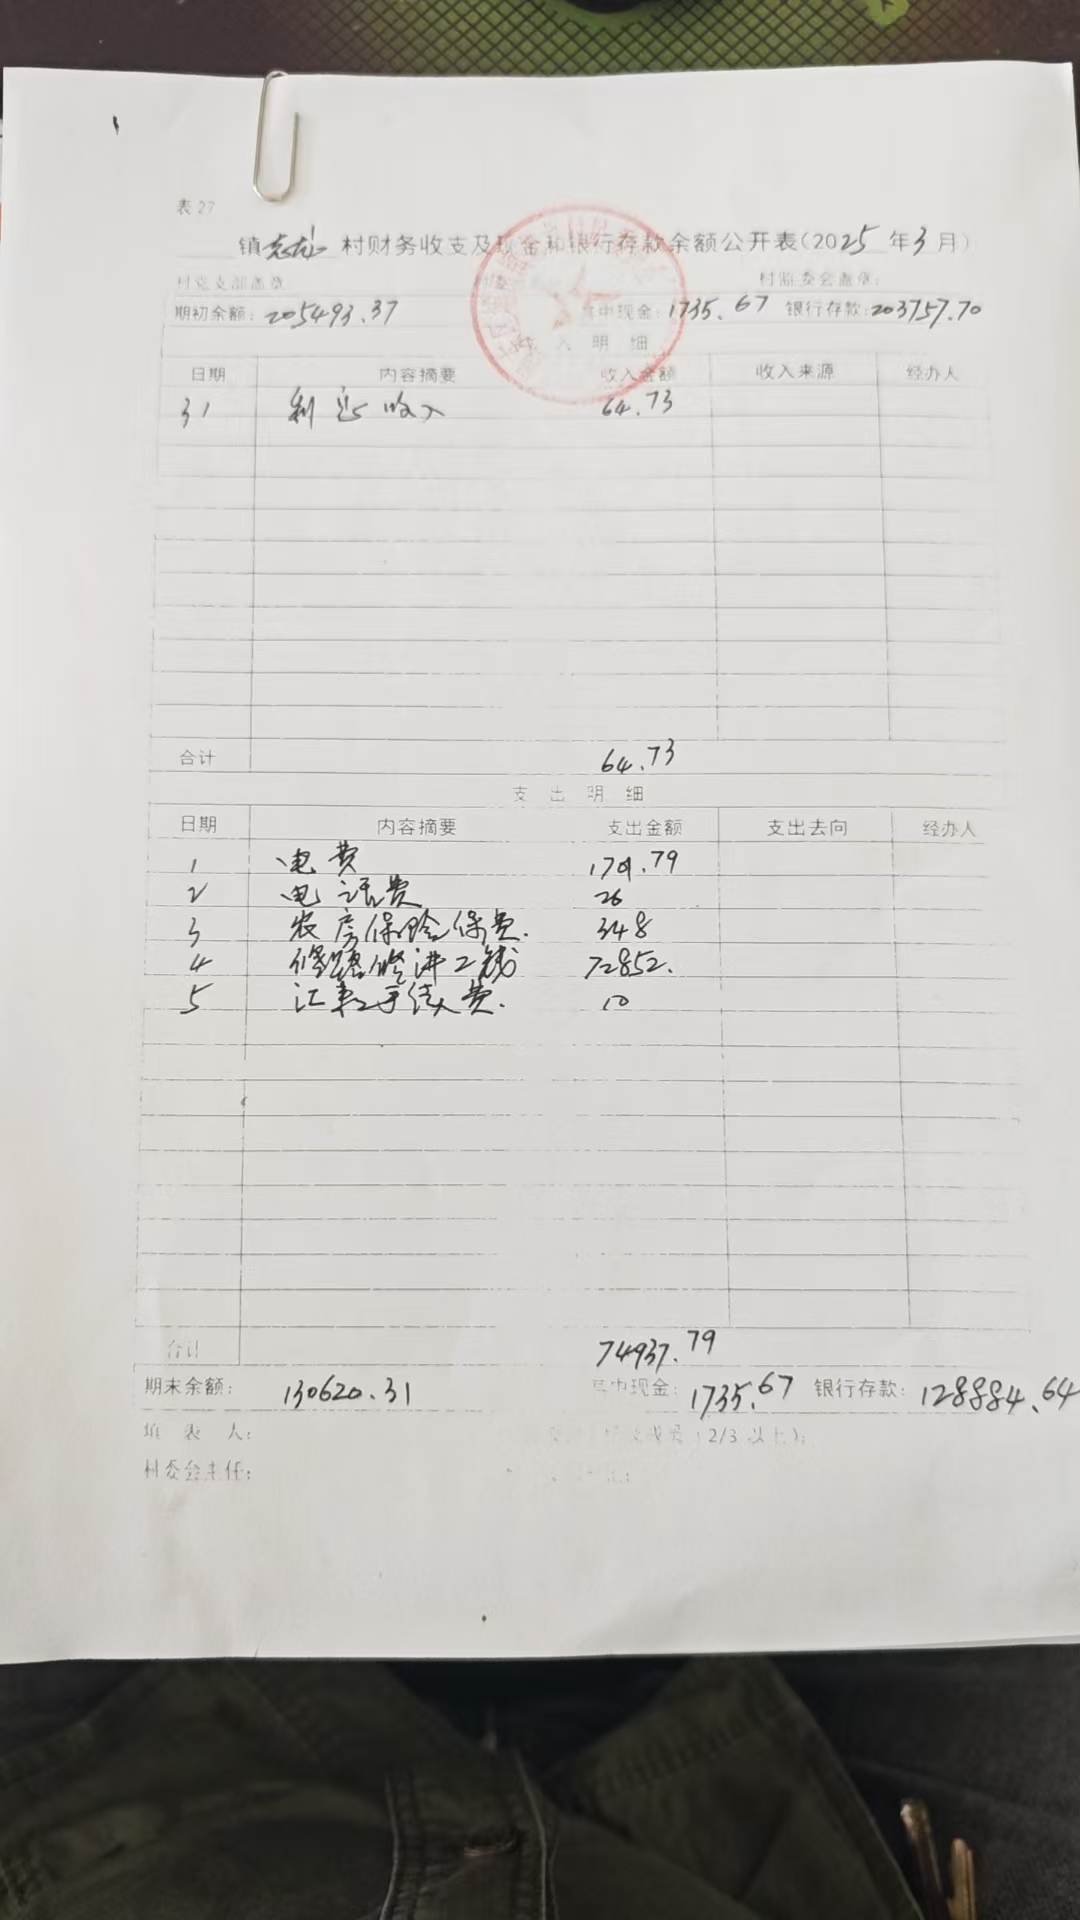 表27
镇 村财务收支及现金和银行存款余额公开表(2025年3月)
村党支部盖章 村监委会盖章:
期初余额: 205493.37 其中现金: 1735.67 银行存款: 203757.70
收入明细
日期 内容摘要 收入金额 收入来源 经办人
31 利息收入 64.73
合计 64.73
支出明细
日期 内容摘要 支出金额 支出去向 经办人
1 电费 1701.79
2 电话费 26
3 农房保险保费. 348
4 修路修讲工钱 72852.
5 汇款手续费. 10
合计 74937.79
期末余额: 130620.31 其中现金: 1735.67 银行存款: 128884.64
填表人: 成员(2/3以上):
村委会主任: